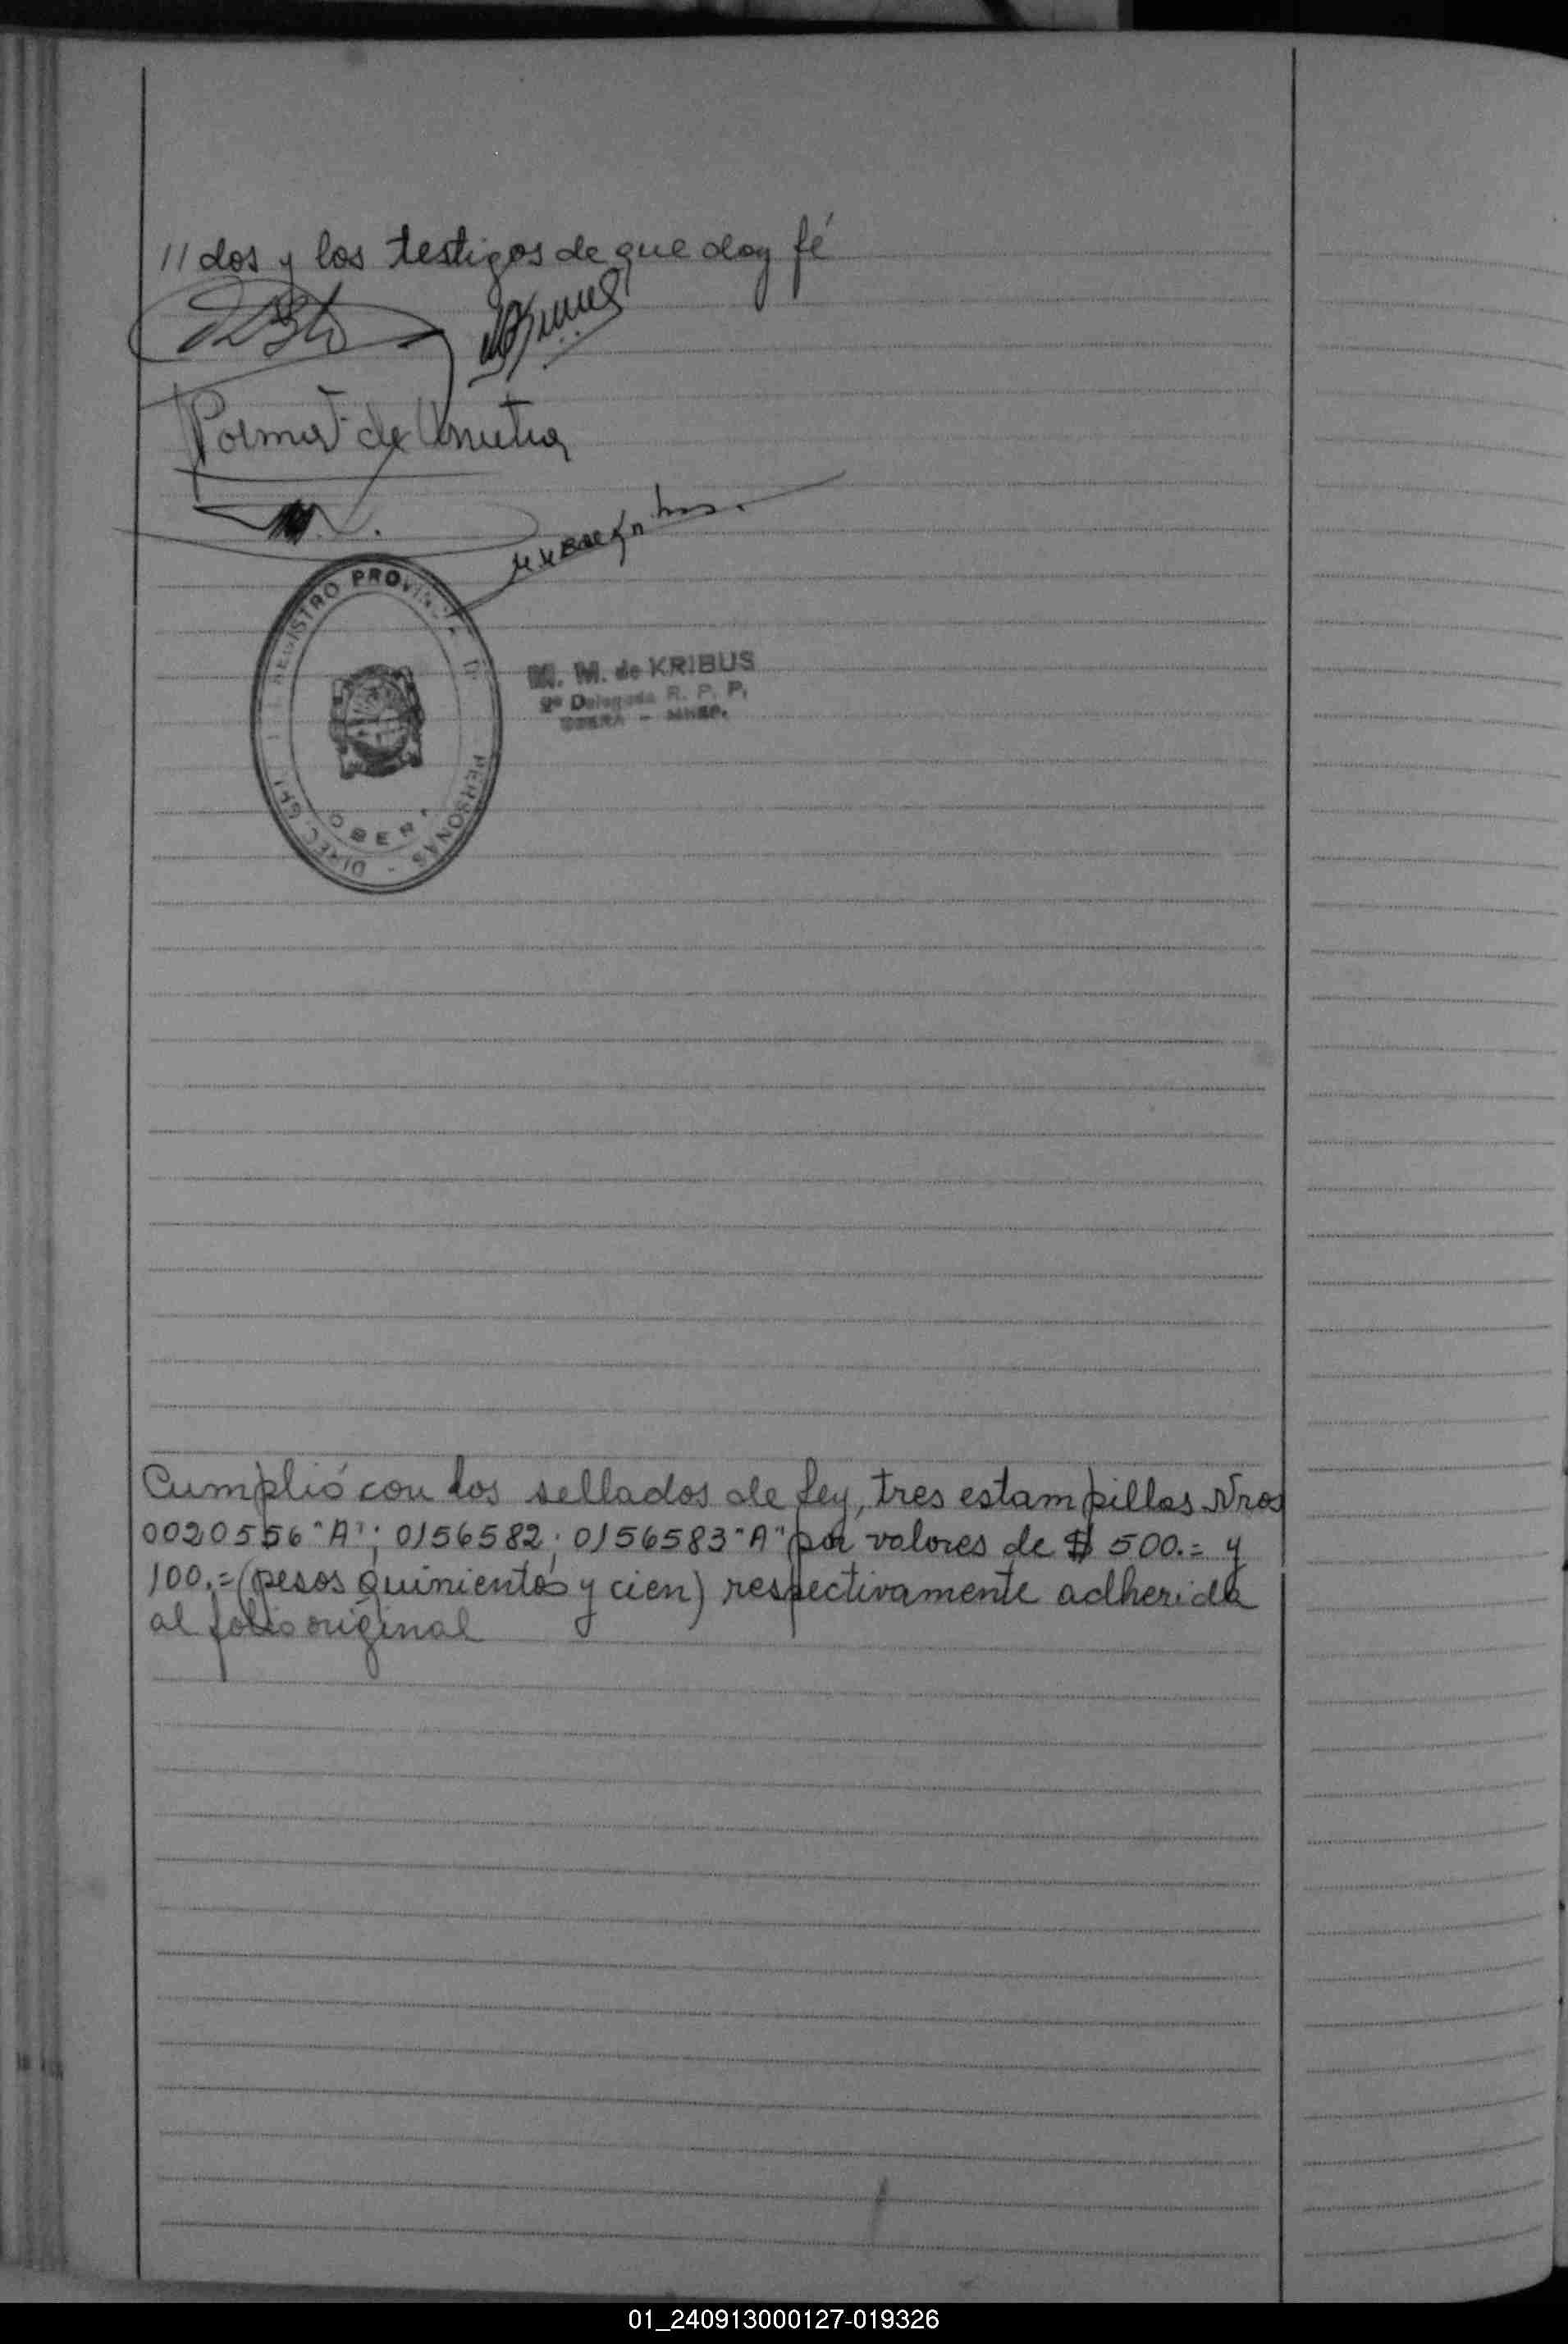 //dos y los testigos de que doy fé
de
DIREC. GRAL. REGISTRO PROVINCIAL DE PERSONAS -
OBERA
M. M. de KRIBUS
2º Delegada R. P. P.
OBERA - MNES.
Cumplió con los sellados de ley, tres estampillas Nros
0020556 "A"; 0156582; 0156583 "A" por valores de $ 500.= y
100.= (pesos quinientos y cien) respectivamente adherida
al folio original
01_240913000127-019326